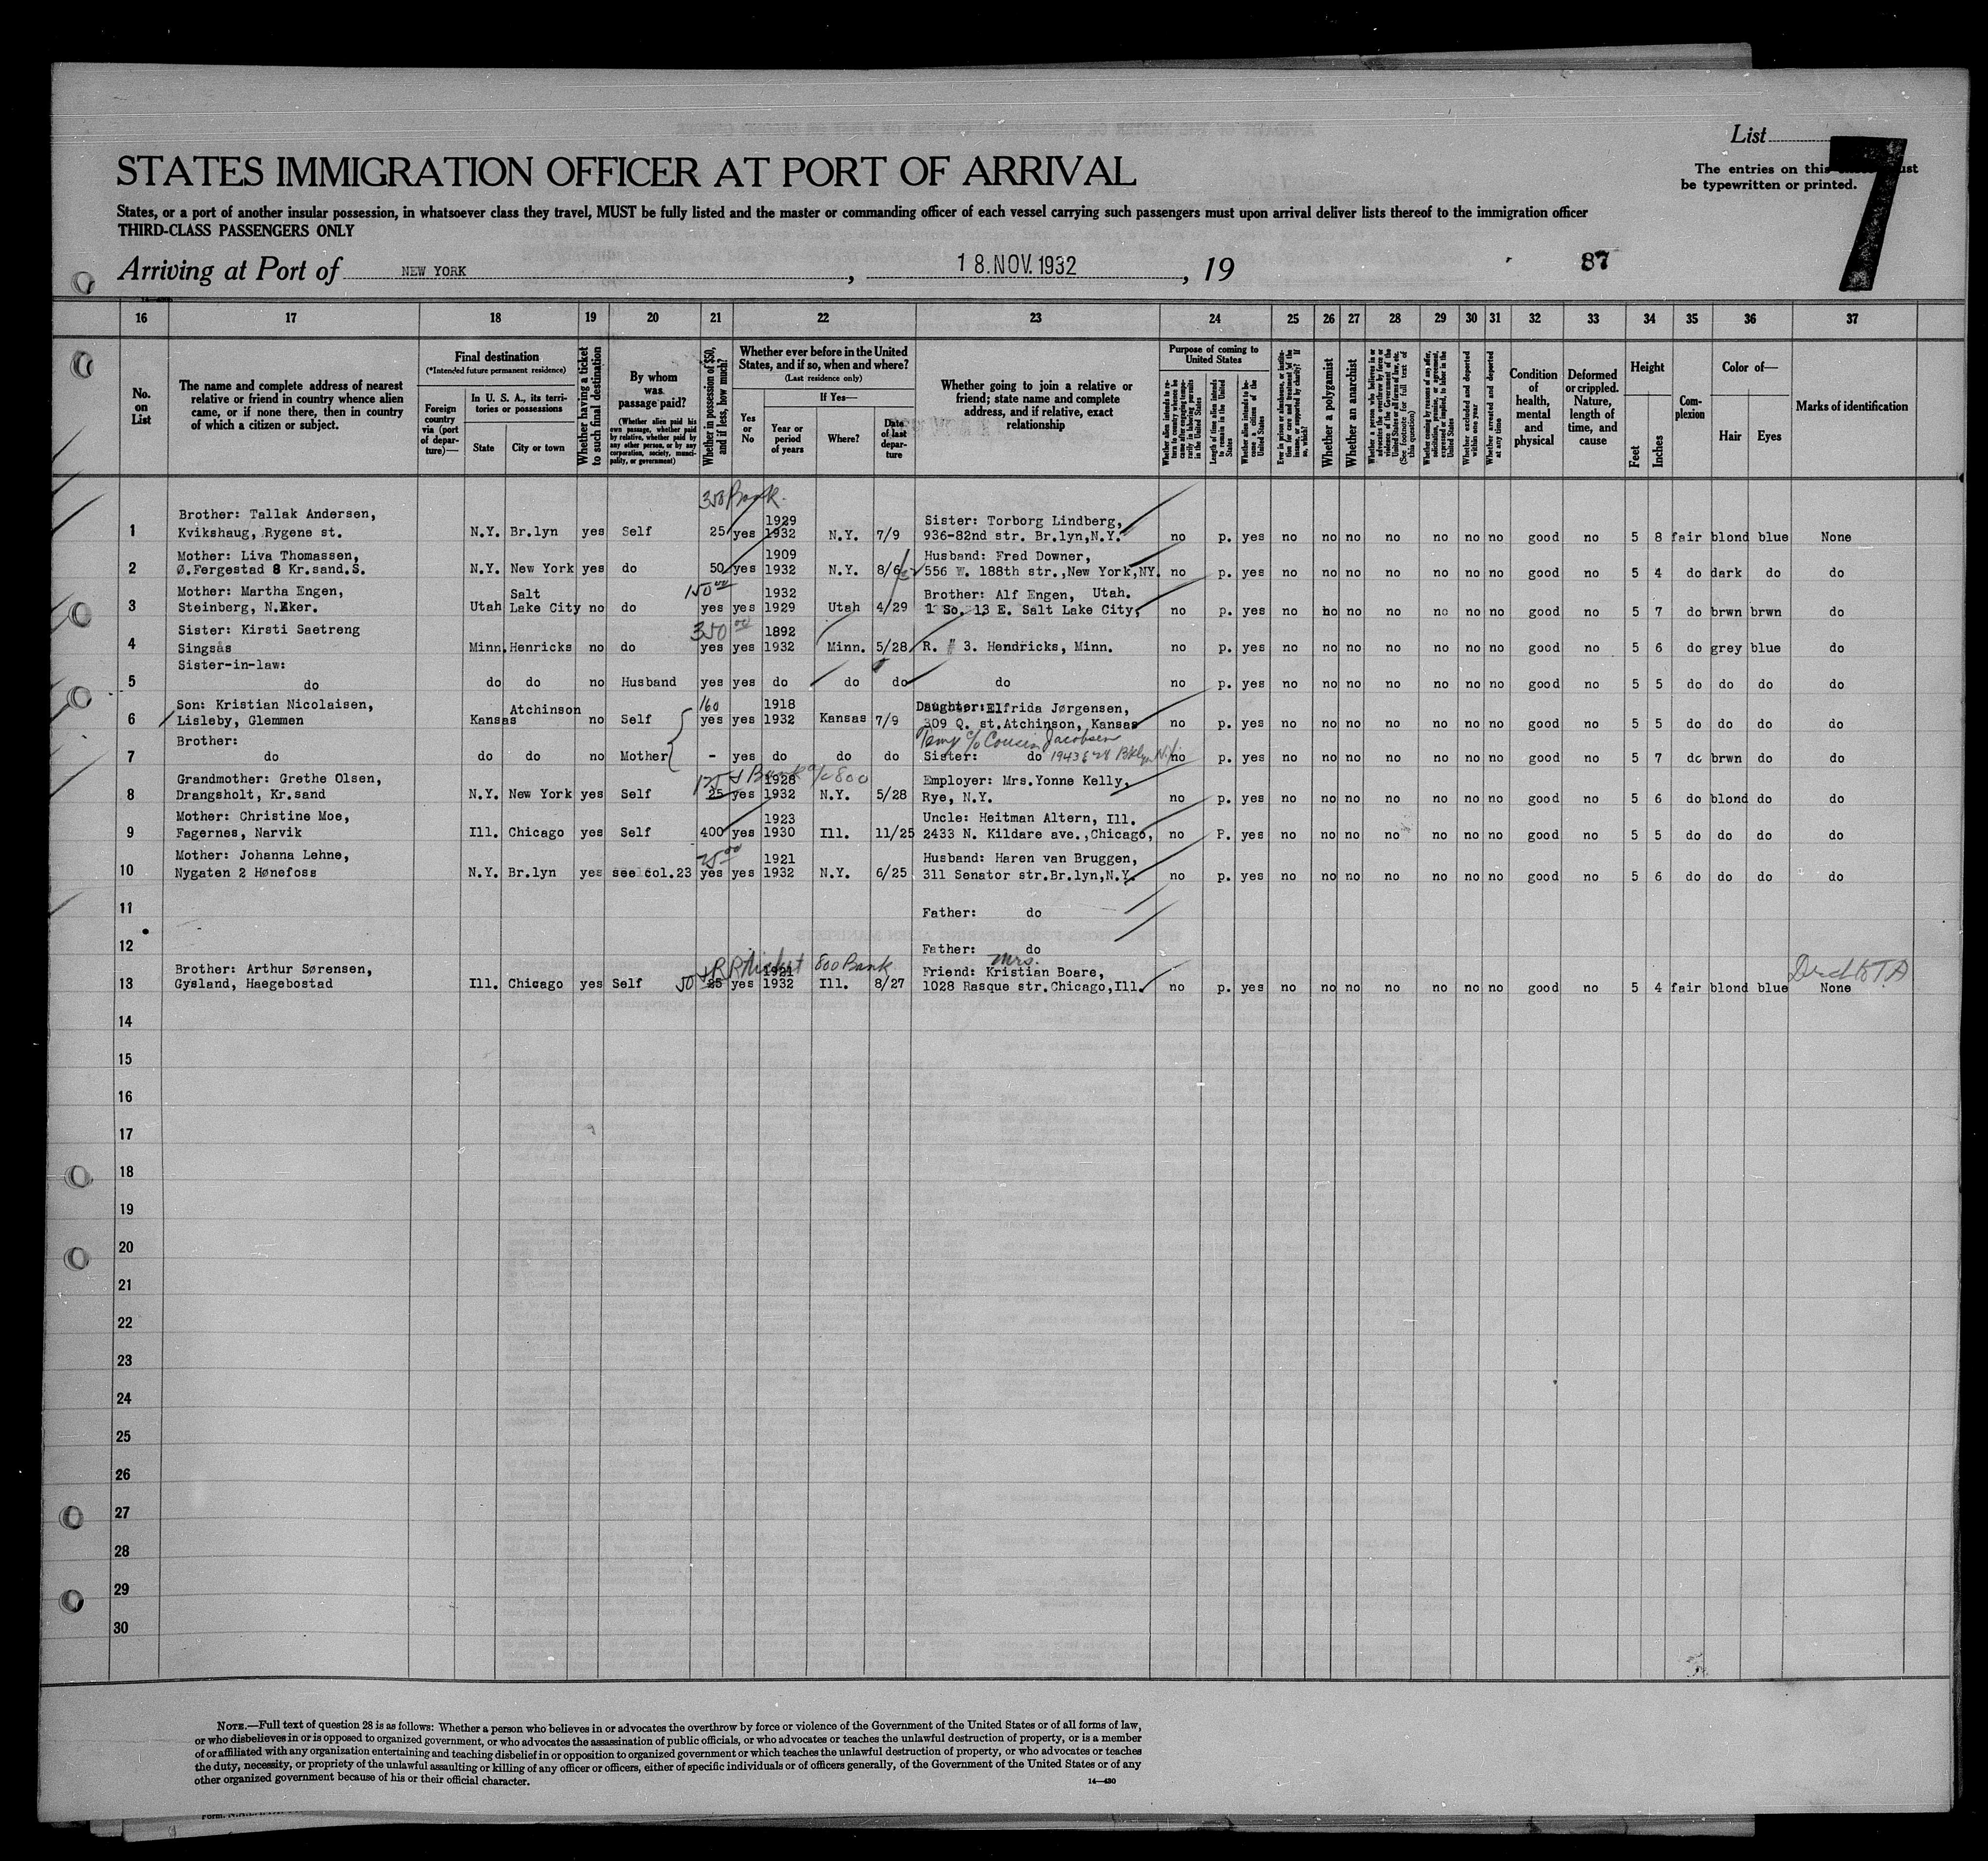 List
7
STATES IMMIGRATION OFFICER AT PORT OF ARRIVAL
The entries on this
be typewritten or printed.
States, or a port of another insular possession, in whatsoever class they travel, MUST be fully listed and the master or commanding officer of each vessel carrying such passengers must upon arrival deliver lists thereof to the immigration officer
THIRD-CLASS PASSENGERS ONLY
Arriving at Port of NEW YORK , 18.NOV.1932 , 19
87
16 17 18 19 20 21 22 23 24 25 26 27 28 29 30 31 32 33 34 35 36 37
No. on List
The name and complete address of nearest relative or friend in country whence alien came, or if none there, then in country of which a citizen or subject.
Final destination
(*Intended future permanent residence)
Foreign country via (port of departure)—
In U. S. A., its territories or possessions
State City or town
Whether having a ticket to such final destination
By whom was passage paid?
(Whether alien paid his own passage, whether paid by relative, whether paid by any other person, or by any corporation, society, municipality, or government)
Whether in possession of $50, and if less, how much?
Whether ever before in the United States, and if so, when and where?
(Last residence only)
Yes or No
If Yes—
Year or period of years
Where?
Date of last departure
Whether going to join a relative or friend; state name and complete address, and if relative, exact relationship
Purpose of coming to United States
Whether alien intends to return to country whence he came after engaging temporarily in laboring pursuits in the United States
Length of time alien intends to remain in the United States
Whether alien intends to become a citizen of the United States
Ever in prison or almshouse, or institution for care and treatment of the insane, or supported by charity? If so, which?
Whether a polygamist
Whether an anarchist
Whether a person who believes in or advocates the overthrow by force or violence of the Government of the United States or all forms of law, etc. (See footnote for full text of this question)
Whether coming by reasons of any offer, solicitation, promise, or agreement, expressed or implied, to labor in the United States
Whether excluded and deported within one year
Whether arrested and deported at any time
Condition of health, mental and physical
Deformed or crippled. Nature, length of time, and cause
Height
Feet Inches
Complexion
Color of—
Hair Eyes
Marks of identification
350 Bank.
Brother: Tallak Andersen, 1929 Sister: Torborg Lindberg,
1 Kvikshaug, Rygene st. N.Y. Br.lyn yes Self 25 yes 1932 N.Y. 7/9 936-82nd str. Br.lyn,N.Y. no p. yes no no no no no no no good no 5 8 fair blond blue None
Mother: Liva Thomassen, 1909 Husband: Fred Downer,
2 Ø.Fergestad 8 Kr.sand.S. N.Y. New York yes do 50 yes 1932 N.Y. 8/6 556 W. 188th str.,New York,NY. no p. yes no no no no no no no good no 5 4 do dark do do
150 00
Mother: Martha Engen, Salt 1932 Brother: Alf Engen, Utah.
3 Steinberg, N.Eker. Utah Lake City no do yes yes 1929 Utah 4/29 1 So. 13 E. Salt Lake City, no p. yes no no no no no no no good no 5 7 do brwn brwn do
350 00
Sister: Kirsti Saetreng 1892
4 Singsås Minn. Henricks no do yes yes 1932 Minn. 5/28 R. # 3. Hendricks, Minn. no p. yes no no no no no no no good no 5 6 do grey blue do
Sister-in-law:
5 do do do no Husband yes yes do do do do no p. yes no no no no no no no good no 5 5 do do do do
Son: Kristian Nicolaisen, Atchinson 160 1918 Daughter:Elfrida Jørgensen,
6 Lisleby, Glemmen Kansas no Self yes yes 1932 Kansas 7/9 309 Q. st.Atchinson, Kansas no p. yes no no no no no no no good no 5 5 do do do do
Temp c/o Cousin Jacobsen
Brother:
7 do do do no Mother - yes do do do Sister: do 1943 Bklyn no p. yes no no no no no no no good no 5 7 do brwn do do
125 Bank a/c 800
Grandmother: Grethe Olsen, 1928 Employer: Mrs.Yonne Kelly,
8 Drangsholt, Kr.sand N.Y. New York yes Self 25 yes 1932 N.Y. 5/28 Rye, N.Y. no p. yes no no no no no no no good no 5 6 do blond do do
Mother: Christine Moe, 1923 Uncle: Heitman Altern, Ill.
9 Fagernes, Narvik Ill. Chicago yes Self 400 yes 1930 Ill. 11/25 2433 N. Kildare ave.,Chicago, no P. yes no no no no no no no good no 5 5 do do do do
75 00
Mother: Johanna Lehne, 1921 Husband: Haren van Bruggen,
10 Nygaten 2 Hønefoss N.Y. Br.lyn yes see col.23 yes yes 1932 N.Y. 6/25 311 Senator str.Br.lyn,N.Y. no p. yes no no no no no no no good no 5 6 do do do do
11 Father: do
12 Father: do
Mrs.
RR ticket 800 Bank
Brother: Arthur Sørensen, 1921 Friend: Kristian Boare,
13 Gysland, Haegebostad Ill. Chicago yes Self 50 25 yes 1932 Ill. 8/27 1028 Rasque str.Chicago,Ill. no p. yes no no no no no no no good no 5 4 fair blond blue None
14
15
16
17
18
19
20
21
22
23
24
25
26
27
28
29
30
NOTE.—Full text of question 28 is as follows: Whether a person who believes in or advocates the overthrow by force or violence of the Government of the United States or of all forms of law,
or who disbelieves in or is opposed to organized government, or who advocates the assassination of public officials, or who advocates or teaches the unlawful destruction of property, or is a member
of or affiliated with any organization entertaining and teaching disbelief in or opposition to organized government or which teaches the unlawful destruction of property, or who advocates or teaches
the duty, necessity, or propriety of the unlawful assaulting or killing of any officer or officers, either of specific individuals or of officers generally, of the Government of the United States or of any
other organized government because of his or their official character.
14—430